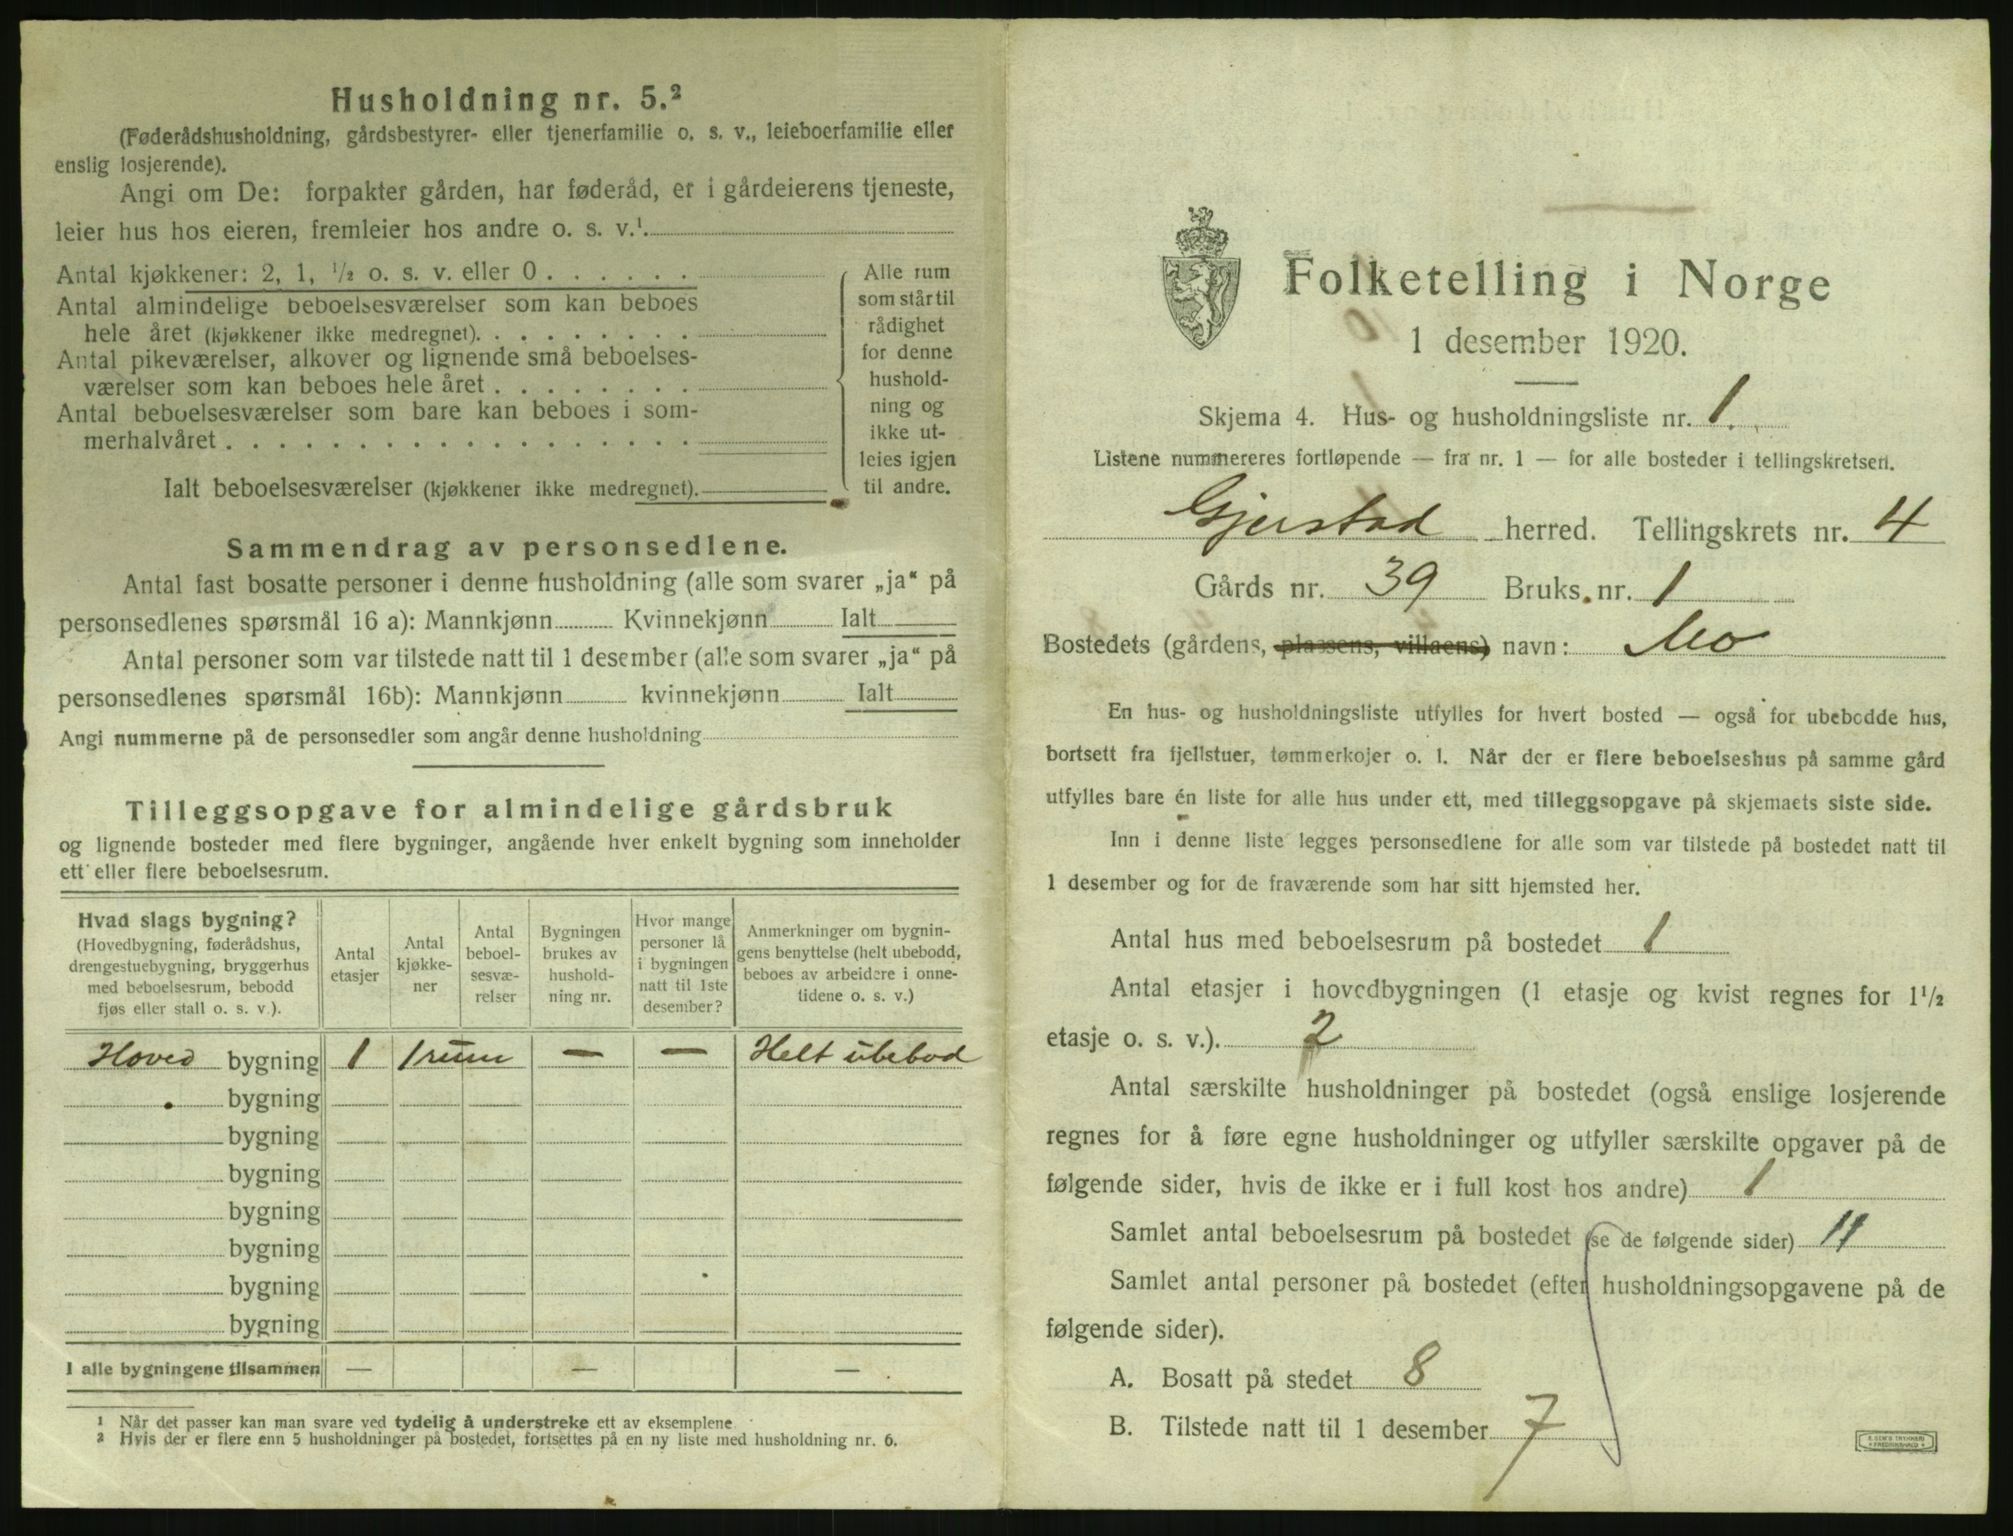 Husholdning nr. 5.²
(Føderådshusholdning, gårdsbestyrer- eller tjenerfamilie o. s. v., leieboerfamilie eller
enslig losjerende).
Angi om De: forpakter gården, har føderåd, er i gårdeierens tjeneste,
leier hus hos eieren, fremleier hos andre o. s. v.¹
Antal kjøkkener: 2, 1, ½ o. s. v. eller 0 . . . . . .
Antal almindelige beboelsesværelser som kan beboes
hele året (kjøkkener ikke medregnet). . . . . . . .
Antal pikeværelser, alkover og lignende små beboelses-
værelser som kan beboes hele året . . . . . . . .
Antal beboelsesværelser som bare kan beboes i som-
merhalvåret . . . . . . . . . . . . . . . . . .
Ialt beboelsesværelser (kjøkkener ikke medregnet).
Alle rum
som står til
rådighet
for denne
hushold-
ning og
ikke ut-
leies igjen
til andre.
Sammendrag av personsedlene.
Antal fast bosatte personer i denne husholdning (alle som svarer „ja“ på
personsedlenes spørsmål 16 a): Mannkjønn Kvinnekjønn Ialt
Antal personer som var tilstede natt til 1 desember (alle som svarer „ja“ på
personsedlenes spørsmål 16b): Mannkjønn kvinnekjønn Ialt
Angi nummerne på de personsedler som angår denne husholdning
Tilleggsopgave for almindelige gårdsbruk
og lignende bosteder med flere bygninger, angående hver enkelt bygning som inneholder
ett eller flere beboelsesrum.
Hvad slags bygning?
(Hovedbygning, føderådshus,
drengestuebygning, bryggerhus
med beboelsesrum, bebodd
fjøs eller stall o. s. v.).
Antal
etasjer
Antal
kjøkke-
ner
Antal
beboel-
sesvæ-
relser
Bygningen
brukes av
hushold-
ning nr.
Hvor mange
personer lå
i bygningen
natt til 1ste
desember?
Anmerkninger om bygnin-
gens benyttelse (helt ubebodd,
beboes av arbeidere i onne-
tidene o. s. v.)
Hoved bygning 1 1 rum — — Helt ubebod
bygning
bygning
bygning
bygning
bygning
bygning
bygning
I alle bygningene tilsammen — — —
¹ Når det passer kan man svare ved tydelig å understreke ett av eksemplene
² Hvis der er flere enn 5 husholdninger på bostedet, fortsettes på en ny liste med husholdning nr. 6.
Folketelling i Norge
1 desember 1920.
Skjema 4. Hus- og husholdningsliste nr. 1
Listene nummereres fortløpende — fra nr. 1 — for alle bosteder i tellingskretsen.
Gjerstad herred. Tellingskrets nr. 4
Gårds nr. 39 Bruks nr. 1
Bostedets (gårdens, plassens, villaens) navn: Mo
En hus- og husholdningsliste utfylles for hvert bosted — også for ubebodde hus,
bortsett fra fjellstuer, tømmerkojer o. l. Når der er flere beboelseshus på samme gård
utfylles bare én liste for alle hus under ett, med tilleggsopgave på skjemaets siste side.
Inn i denne liste legges personsedlene for alle som var tilstede på bostedet natt til
1 desember og for de fraværende som har sitt hjemsted her.
Antal hus med beboelsesrum på bostedet 1
Antal etasjer i hovedbygningen (1 etasje og kvist regnes for 1½
etasje o. s. v.). 2
Antal særskilte husholdninger på bostedet (også enslige losjerende
regnes for å føre egne husholdninger og utfyller særskilte opgaver på de
følgende sider, hvis de ikke er i full kost hos andre) 1
Samlet antal beboelsesrum på bostedet (se de følgende sider) 11
Samlet antal personer på bostedet (efter husholdningsopgavene på de
følgende sider).
A. Bosatt på stedet 8
B. Tilstede natt til 1 desember 7